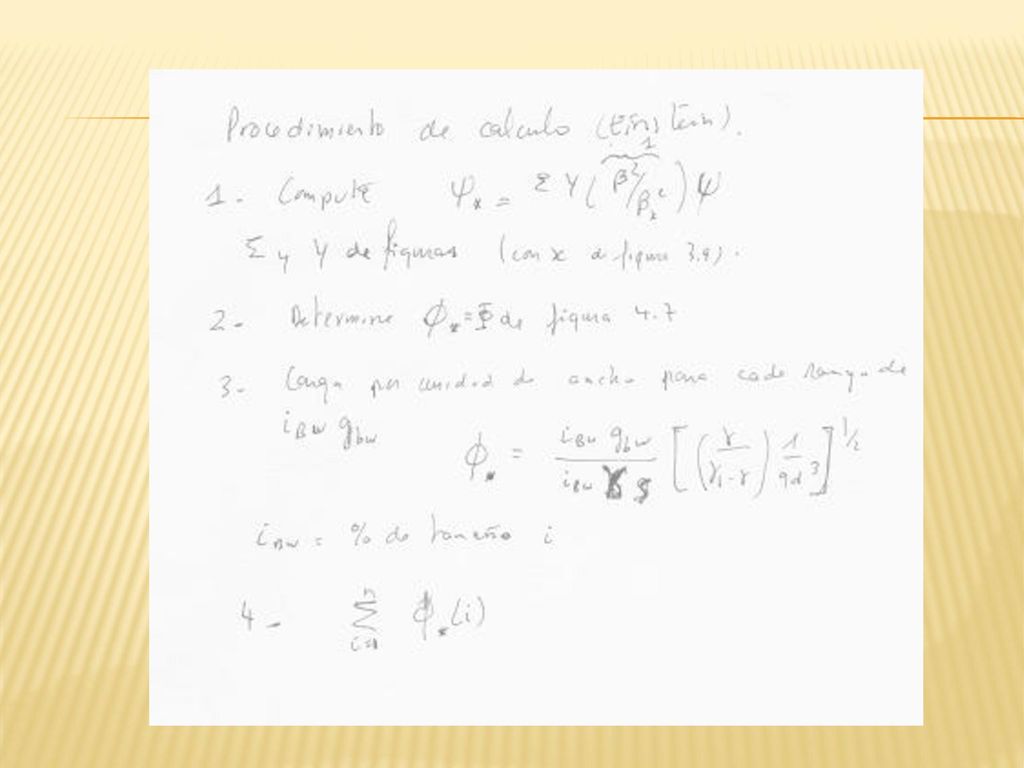 Procedimiento de calculo (Einstein).
1
1. Compute Ψ* = Σ Y (β²/βx²) Ψ
Σ y Y de figuras (con x de figura 3.9).
2- Determine ϕ* = Φ de figura 4.7
3- Carga por unidad de ancho para cada rango de
iBw gbw
ϕ* = iBw gbw / iBw γs [(γ / γ1-γ) 1 / gd³]^1/2
iBw = % de tamaño i
4- Σ i=1 n ϕ*(i)